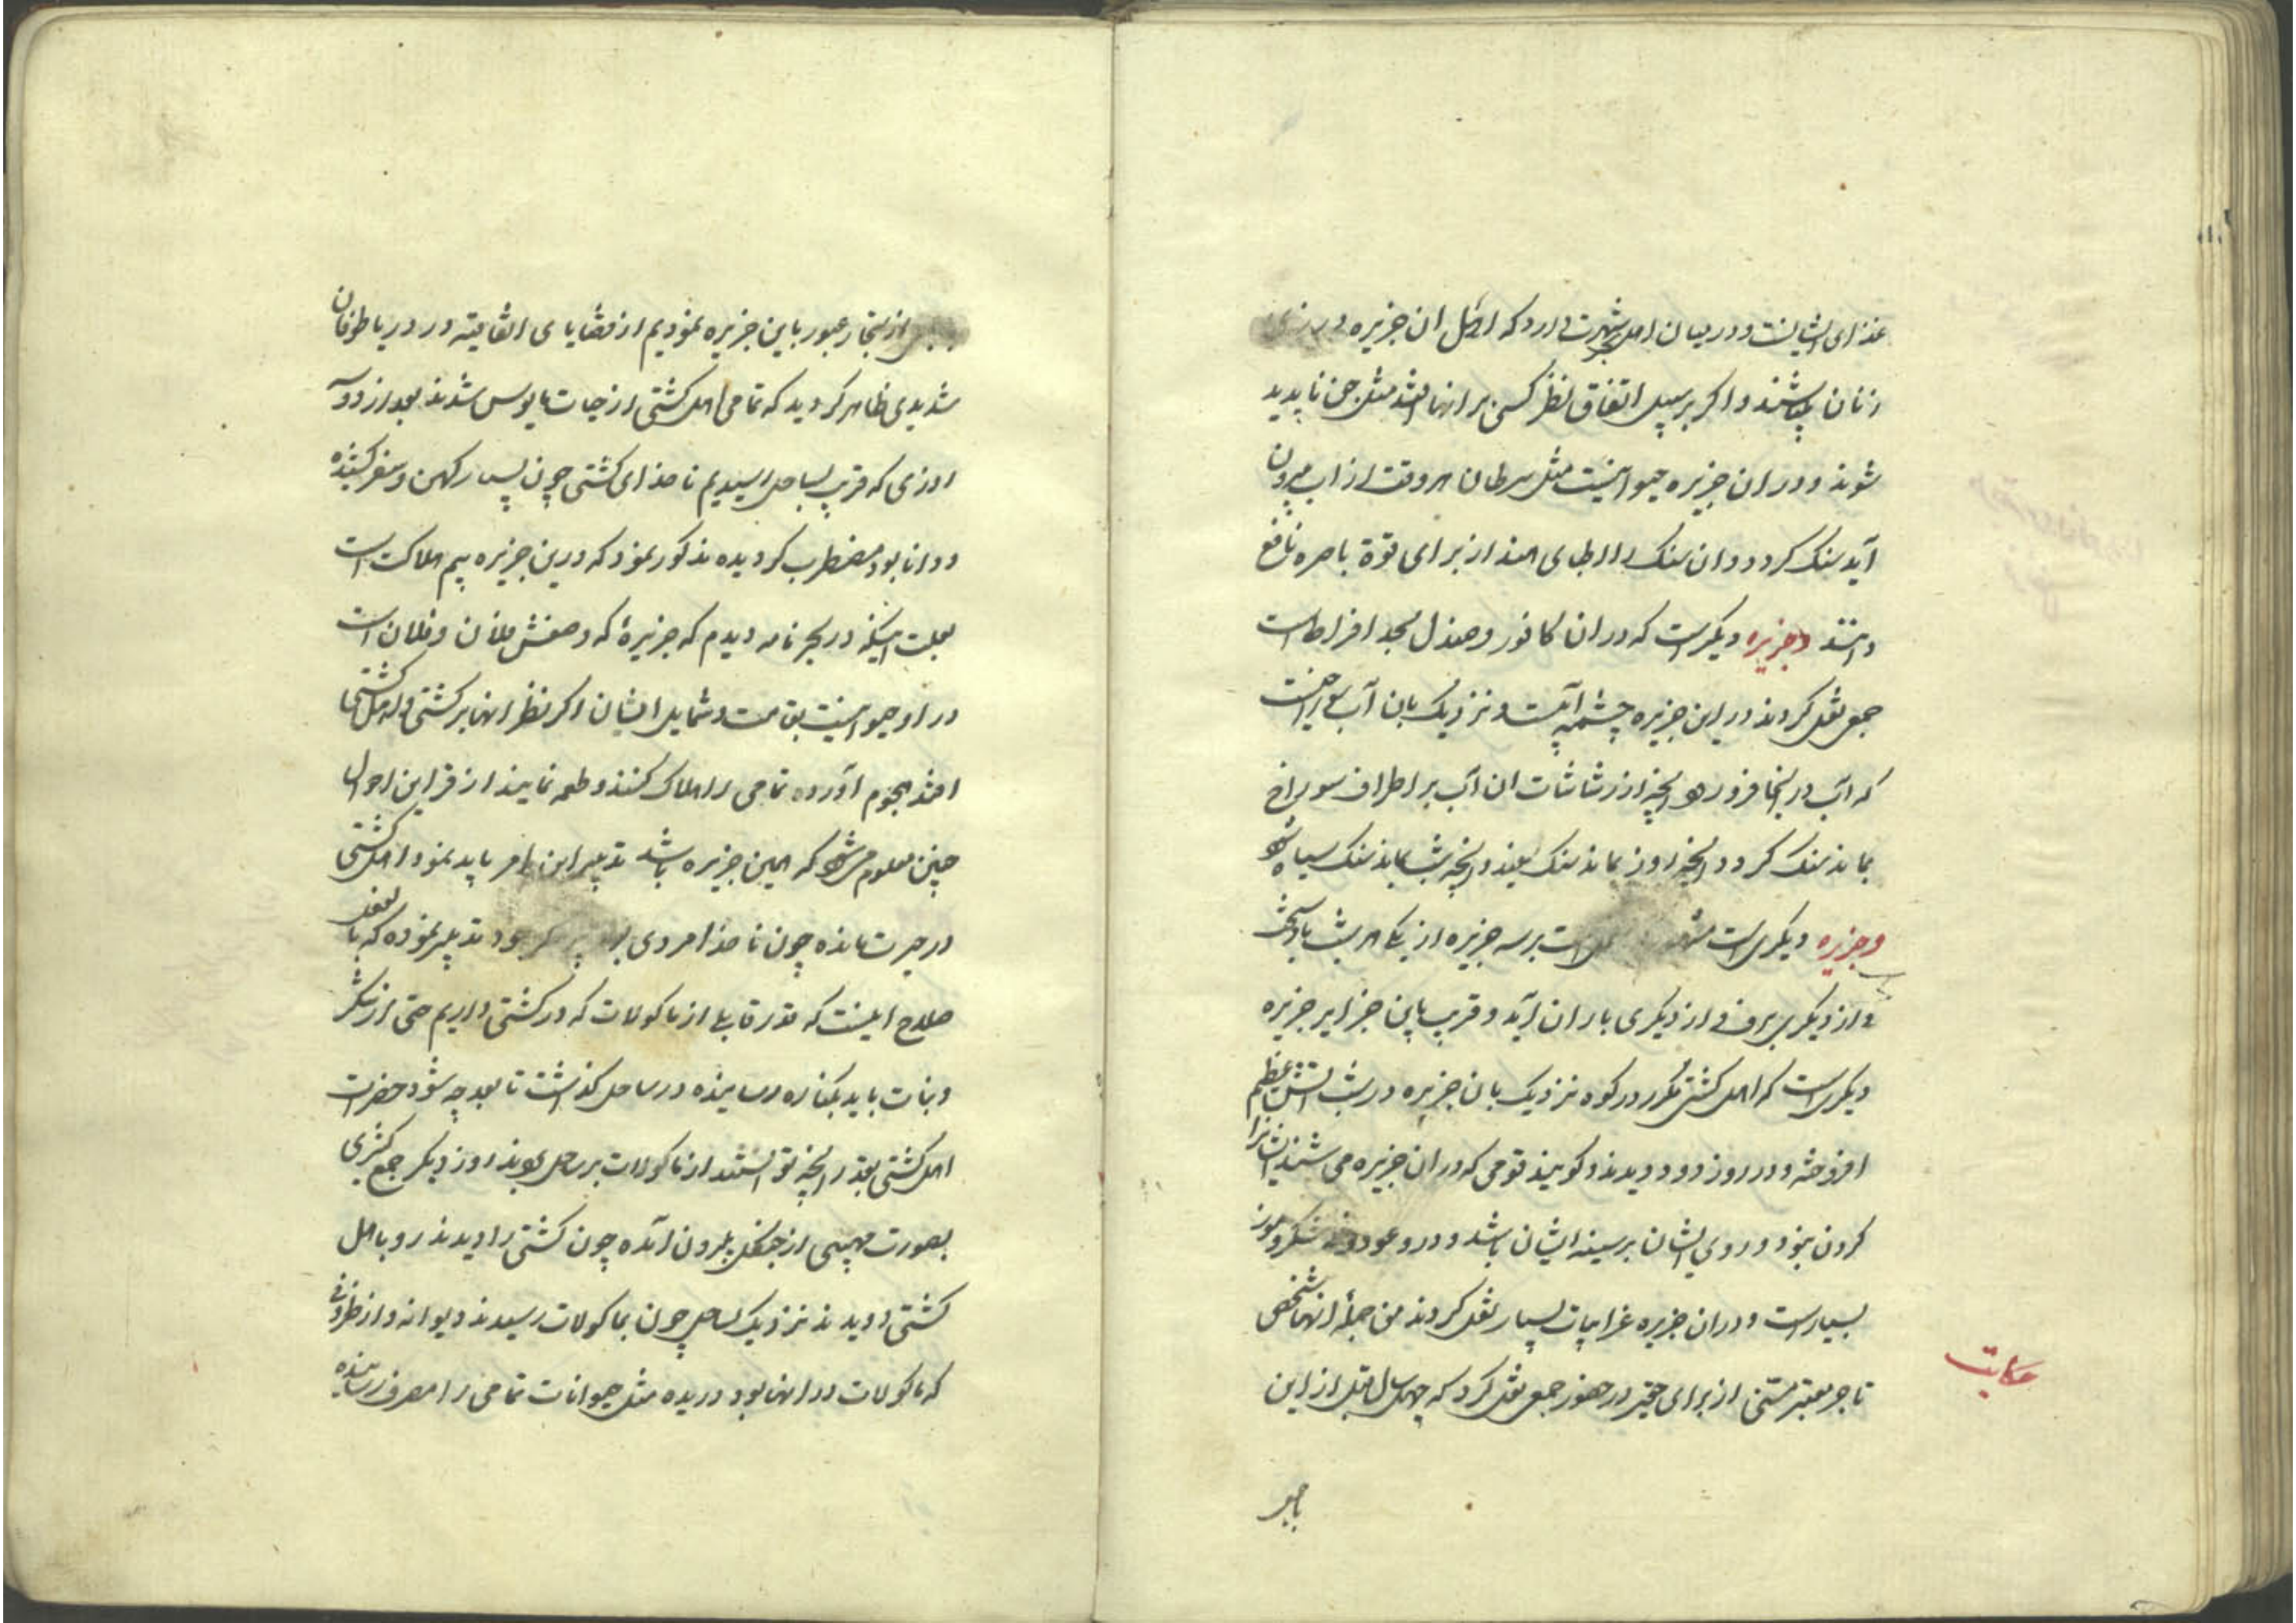 غذای ایشانست و در میان اهل شهرت دارد که اکل ان جزیره در
زنان میباشند و اکر بر سبیل اتفاق نظر کسی بر انها افتد مثل جن ناپدید
شوند و در ان جزیره حیوانیست مثل سرطان هر وقت از اب بیرون
آید سنک کردد و ان سنک را اطبای هند از برای قوة باصره نافع
دانند وجزیره دیکر است که در ان کافور و صندل بحد افراط است
جمعی نقل کردند در این جزیره چشمه آبیست و نزدیک بان آب سوراخیست
که آب در انجا فرو رود انچه از رشاشات ان آب بر اطراف سوراخ
بماند سنک کردد انچه روز بماند سنک سفید و انچه شب بماند سنک سیاه شود
وجزیره دیکری است است بر سه جزیره از یکی هر شب باد سخت
و از دیکری برف و از دیکری باران آید و قریب باین جزایر جزیره
دیکری است که اهل کشتی مکرر در کوه نزدیک بان جزیره در شب آتش عظیم
افروخته و در روز دود دیدند و کویند قومی که در ان جزیره می باشند ایشانرا
کردن نبود و روی ایشان بر سینه ایشان باشد و در و عود و شکر و موز
بسیار است و در ان جزیره غرایبات بسیار نقل کردند من جمله انها شخصی
حکایت
تاجر معتبر مسنی از برای حقیر در حضور جمعی نقل کرد که چهل سال قبل از این
با جمعی
از تجار عبور باین جزیره نمودیم از قضایای اتفاقیه در دریا طوفان
شدیدی ظاهر کردید که تمامی اهل کشتی از حیات مایوس شدند بعد از دو سه
روزی که قریب بساحل رسیدیم ناخدای کشتی چون بسیار کهن و سفر کشیده
و دانا بود مضطرب کردیده مذکور نمود که درین جزیره بیم هلاکت است
بعلت اینکه در بحر نامه دیدم که جزیرهٔ که وصفش فلان و فلان است
در او حیوانیست بقامت و شمایل ایشان اکر نظر انها بر کشتی و اهل کشتی
افتد هجوم آورده تمامی را هلاک کنند و طعمه نمایند از قراین احوال
چنین معلوم میشود که همین جزیره باشد تدبیر این امر باید نمود اهل کشتی
در حیرت مانده چون ناخدا مردی بود تدبیر نموده که بالفعل
صلاح اینست که قدر قابلی از ماکولات که در کشتی داریم حتی از شکر
و نبات باید بکناره رسانیده در ساحل کذاشت تا بعد چه شود حضرات
اهل کشتی بقدر انچه توانستند از ماکولات بر ساحل بردند روز دیکر جمع کثیری
بصورت مهیبی از جنکل بیرون آمده چون کشتی را دیدند رو باهل
کشتی دویدند نزدیک بساحل چون بماکولات رسیدند دیوانه وار ظروفی
که ماکولات در انها بود دریده مثل حیوانات تمامی را مصرف رسانیده